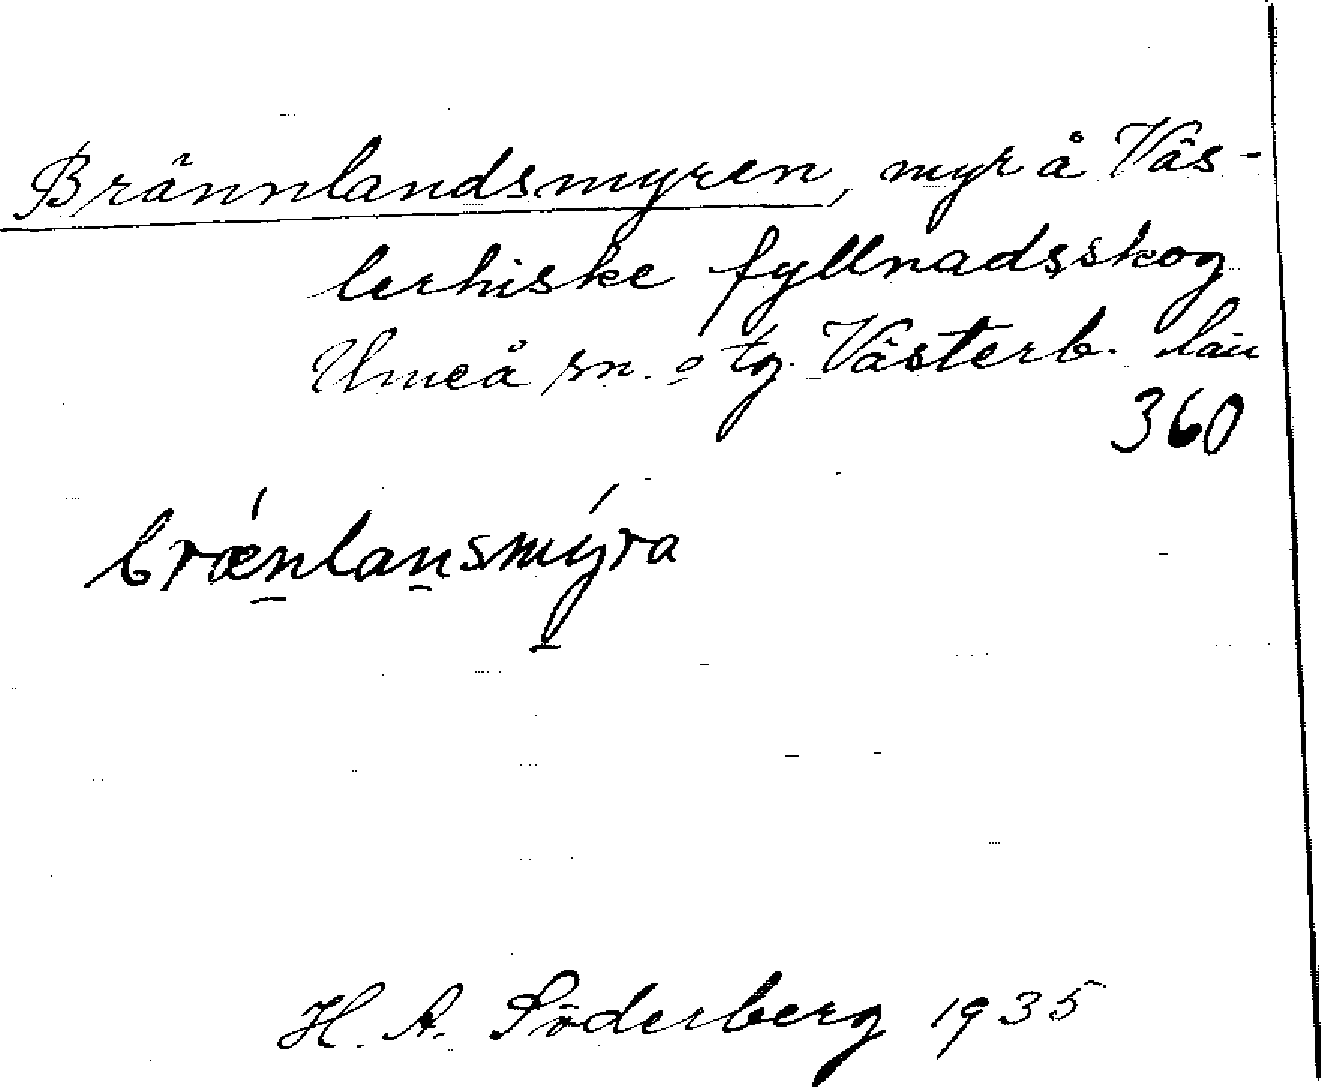 Brännlandsmyren, myr å Väs-
lerhiske fyllnadsskog
Umeå sn. o tg. Västerb. län
360
brǽnlansmýra
H. A. Söderberg 1935